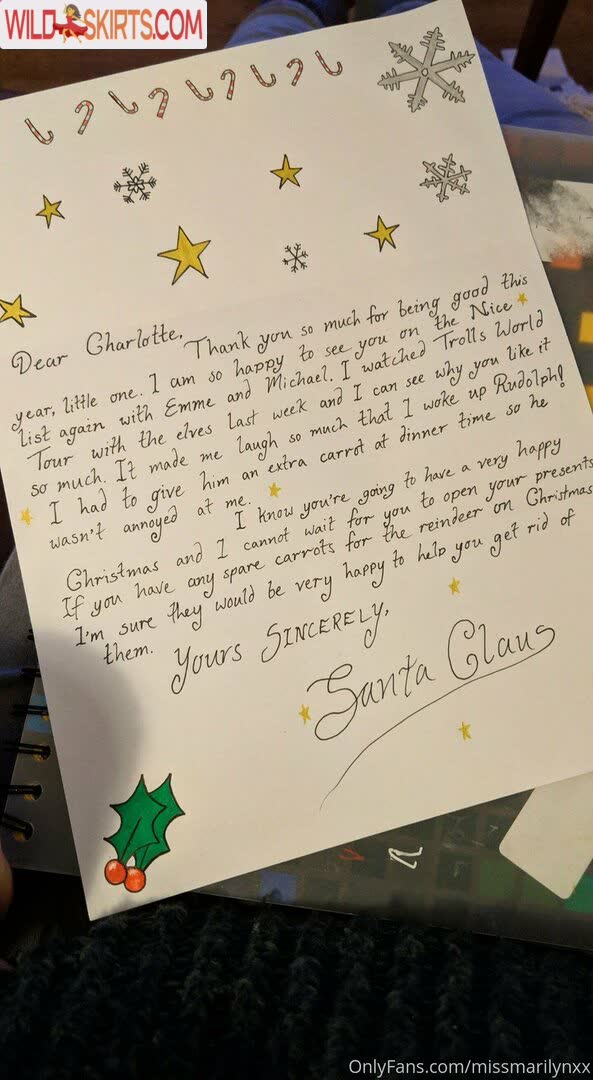 WILD SKIRTS.COM
Dear Charlotte,
Thank you so much for being good this
year, little one. I am so happy to see you on the Nice
list again with Emme and Michael. I watched Trolls World
Tour with the elves last week and I can see why you like it
so much. It made me laugh so much that I woke up Rudolph!
I had to give him an extra carrot at dinner time so he
wasn't annoyed at me.
I know you're going to have a very happy
Christmas and I cannot wait for you to open your presents
If you have any spare carrots for the reindeer on Christmas
I'm sure they would be very happy to help you get rid of
them.
Yours Sincerely,
Santa Claus
OnlyFans.com/missmarilynxx